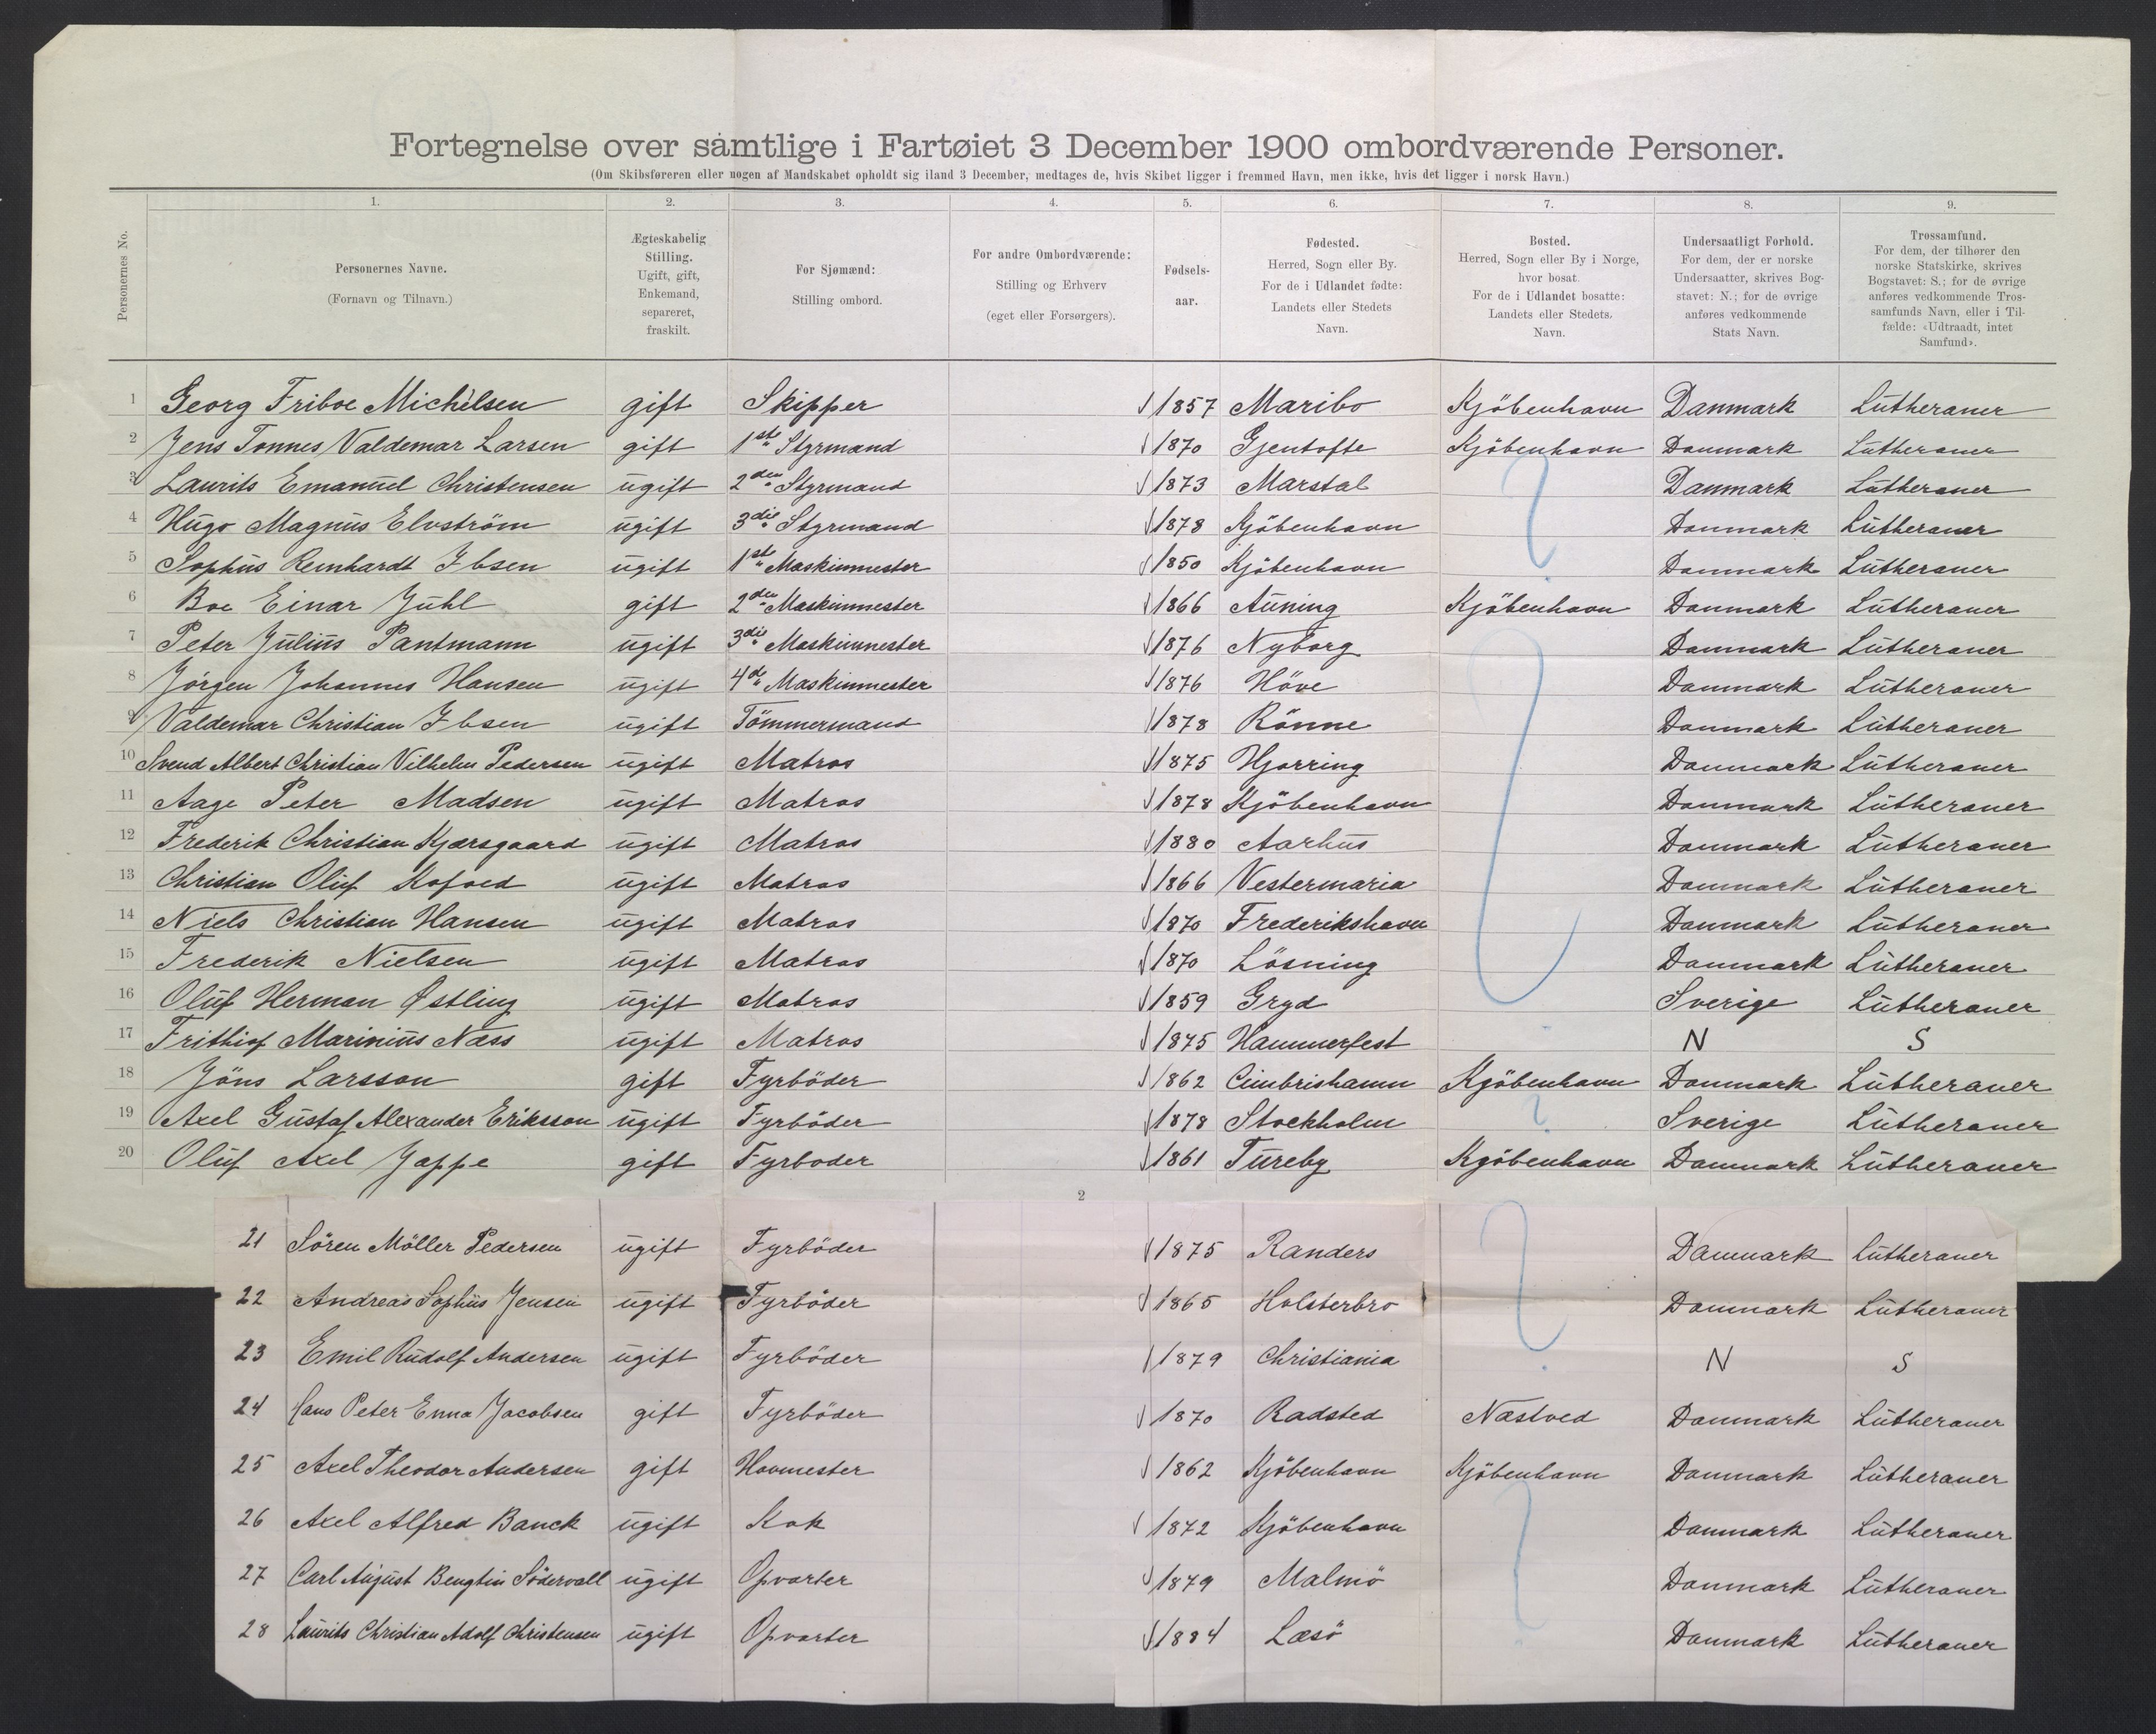 Fortegnelse over samtlige i Fartøiet 3 December 1900 ombordværende Personer.
(Om Skibsføreren eller nogen af Mandskabet opholdt sig iland 3 December, medtages de, hvis Skibet ligger i fremmed Havn, men ikke, hvis det ligger i norsk Havn.)
Personernes No.
1. 2. 3. 4. 5. 6. 7. 8. 9.
Personernes Navne.
(Fornavn og Tilnavn.)
Ægteskabelig
Stilling.
Ugift, gift,
Enkemand,
separeret,
fraskilt.
For Sjømænd:
Stilling ombord.
For andre Ombordværende:
Stilling og Erhverv
(eget eller Forsørgers).
Fødsels-
aar.
Fødested.
Herred, Sogn eller By.
For de i Udlandet fødte:
Landets eller Stedets
Navn.
Bosted.
Herred, Sogn eller By i Norge,
hvor bosat.
For de i Udlandet bosatte:
Landets eller Stedets
Navn.
Undersaatligt Forhold.
For dem, der er norske
Undersaatter, skrives Bog-
stavet: N.; for de øvrige
anføres vedkommende
Stats Navn.
Trossamfund.
For dem, der tilhører den
norske Statskirke, skrives
Bogstavet: S.; for de øvrige
anføres vedkommende Tros-
samfunds Navn, eller i Til-
fælde: «Udtraadt, intet
Samfund».
1 Georg Friboe Michelsen gift Skipper 1857 Maribo Kjöbenhavn Danmark Lutheraner
2 Jens Tonnes Valdemar Larsen gift 1ste Styrmand 1870 Gjentofte Kjöbenhavn Danmark Lutheraner
3 Laurits Emanuel Christensen ugift 2den Styrmand 1873 Marstal ? Danmark Lutheraner
4 Hugo Magnus Elvström ugift 3die Styrmand 1878 Kjöbenhavn Danmark Lutheraner
5 Sophus Reinhardt Ibsen ugift 1ste Maskinmester 1850 Kjöbenhavn Danmark Lutheraner
6 Boe Einar Juhl gift 2den Maskinmester 1866 Auning Kjöbenhavn Danmark Lutheraner
7 Peter Julius Pantmann ugift 3die Maskinmester 1876 Nyborg ? Danmark Lutheraner
8 Jörgen Johannes Hansen ugift 4de Maskinmester 1876 Höve Danmark Lutheraner
9 Valdemar Christian Ibsen ugift Tömmermand 1878 Rönne Danmark Lutheraner
10 Svend Albert Christian Vilhelm Pedersen ugift Matros 1875 Hjorring Danmark Lutheraner
11 Aage Peter Madsen ugift Matros 1878 Kjöbenhavn Danmark Lutheraner
12 Frederik Christian Kjærsgaard ugift Matros 1880 Aarhus Danmark Lutheraner
13 Christian Oluf Kofoed ugift Matros 1866 Vestermaria Danmark Lutheraner
14 Niels Christian Hansen ugift Matros 1870 Frederikshavn Danmark Lutheraner
15 Frederik Nielsen ugift Matros 1870 Lösning Danmark Lutheraner
16 Oluf Herman Østling ugift Matros 1859 Gryd Sverige Lutheraner
17 Frithiof Marinius Næss ugift Matros 1875 Hammerfest N S
18 Jöns Larsson gift Fyrböder 1862 Cimbrishamn Kjöbenhavn Danmark Lutheraner
19 Axel Gustaf Alexander Eriksson ugift Fyrböder 1878 Stockholm ? Sverige Lutheraner
20 Oluf Axel Jappe gift Fyrboder 1861 Tureby Kjöbenhavn Danmark Lutheraner
2
21 Sören Möller Pedersen ugift Fyrböder 1875 Randers ? Danmark Lutheraner
22 Andreas Sophus Jensen ugift Fyrböder 1865 Holsterbro Danmark Lutheraner
23 Emil Rudolf Andersen ugift Fyrböder 1879 Christiania N S
24 Hans Peter Enna Jacobsen gift Fyrböder 1870 Radsted Næstved Danmark Lutheraner
25 Axel Theodor Andersen gift Hovmester 1862 Kjöbenhavn Kjöbenhavn Danmark Lutheraner
26 Axel Alfred Banck ugift Kok 1872 Kjöbenhavn ? Danmark Lutheraner
27 Carl August Bengtin Södervall ugift Opvarter 1879 Malmö Danmark Lutheraner
28 Laurits Christian Adolf Christensen ugift Opvarter 1884 Læsö Danmark Lutheraner